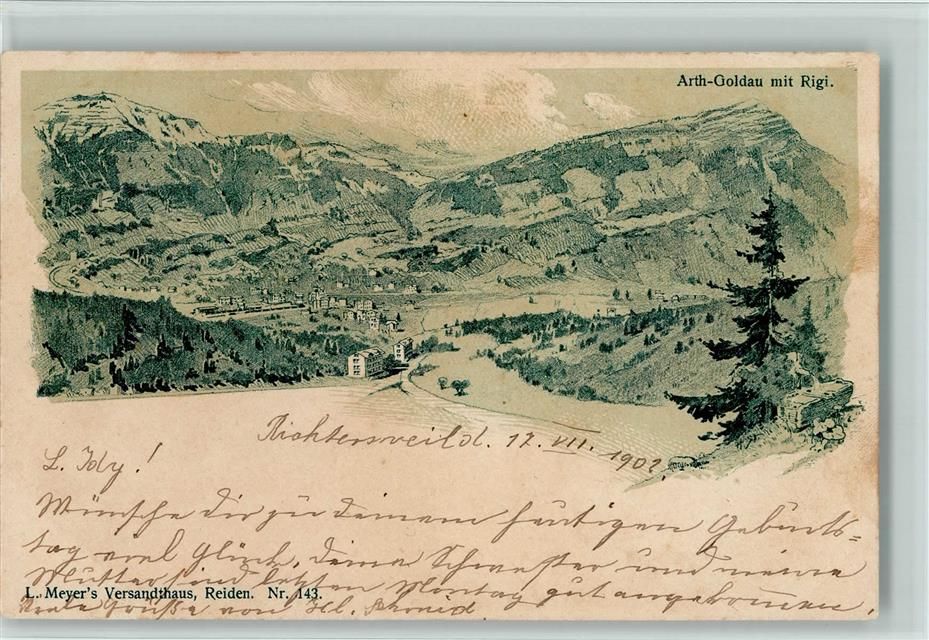 Arth-Goldau mit Rigi.
Richtersweil d. 12. VII. 1902
L. Idy!
Wünsche dir zu deinem heutigen Geburts=
tag viel Glück, deine Schwester und meine
Mutter sind letzten Montag gut angekommen.
L. Meyer's Versandthaus, Reiden. Nr. 143.
viele Grüße von Hl. Schmid